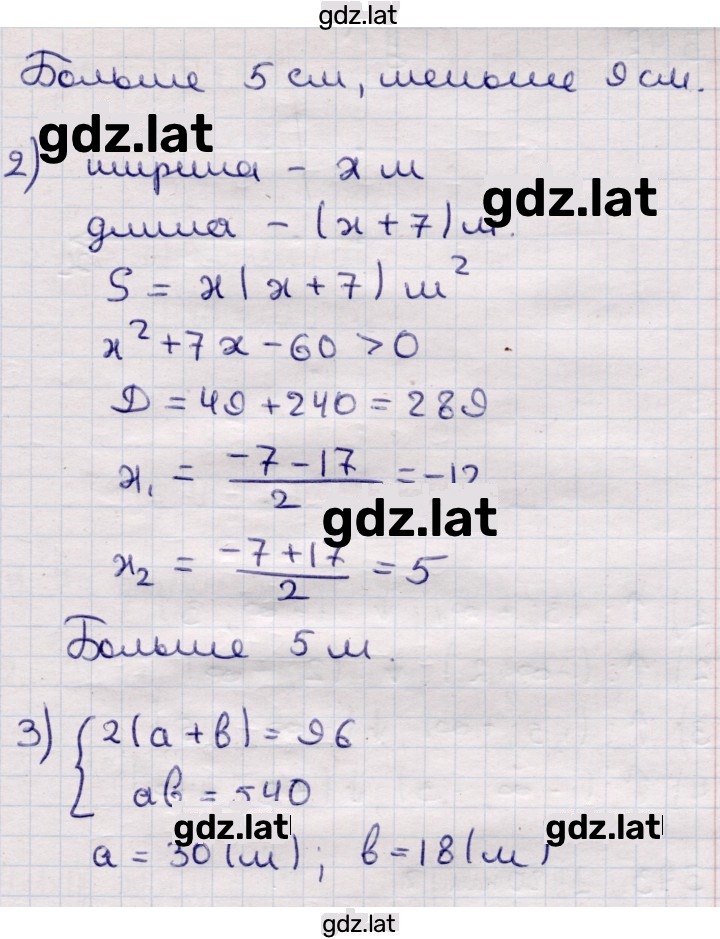 gdz.lat
Больше 5 см, меньше 9 см.
gdz.lat
2) ширина - x м
gdz.lat
длина - (x + 7) м.
S = x(x + 7) м²
x² + 7x - 60 > 0
D = 49 + 240 = 289
x₁ = (-7 - 17)/2 = -12
gdz.lat
x₂ = (-7 + 17)/2 = 5
Больше 5 м.
3) { 2(a + b) = 96
ab = 540
gdz.lat gdz.lat
a = 30 (м); b = 18 (м)
gdz.lat